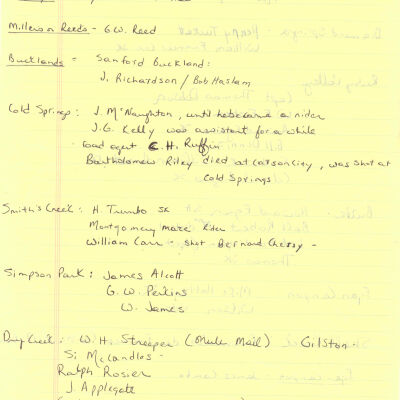 Millers or Reeds - G.W. Reed
Bucklands = Sanford Buckland:
J. Richardson / Bob Haslam
Cold Springs: J. McNaughton, until he became a rider
J.G. Kelly was assistant for a while
road agent C.H. Ruffin
Bartholomew Riley died at Carson City, was shot at
Cold Springs
Smith's Creek: H. Trumbo SK
Montgomery Maze Rider
William Carr - shot - Bernard Chessy -
Simpson Park: James Alcott
G.W. Perkins
W. James
Dry Creek: W.H. Streeper (Mule Mail) Gilston.
Si McCandles -
Ralph Rosier
J. Applegate